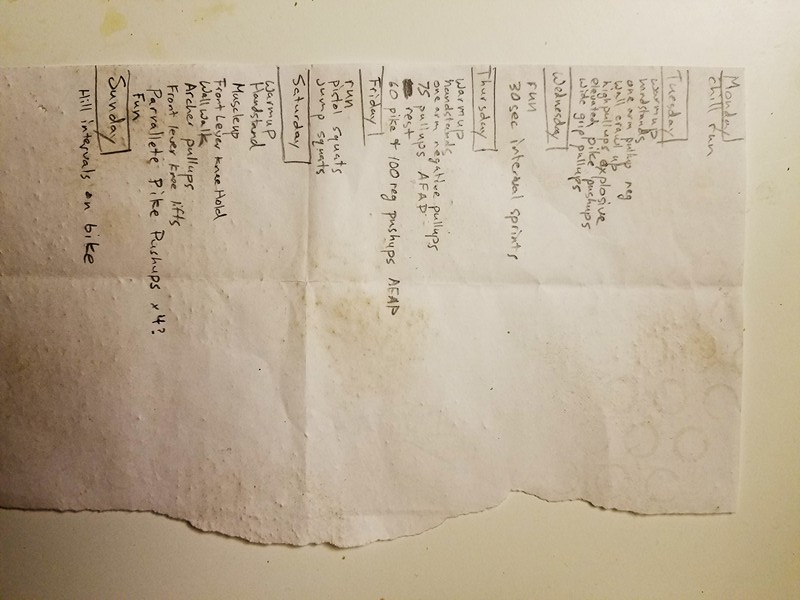 Monday
chill run
Tuesday
warmup
handstands
one arm pullup neg
wall crawl up
high pullups explosive
elevated pike pushups
wide grip pullups
Wednesday
run
30 sec interval sprints
Thursday
warmup
handstands
one arm negative pullups
75 pullups AFAP
rest
60 pike & 100 reg pushups AFAP
Friday
run
pistol squats
Jump squats
Saturday
Warmup
Handstand
Muscleup
Front Lever Knee Hold
Wall walk
Archer pullups
Front lever Knee lifts
Parrallete Pike Pushups x 4?
Fun
Sunday
Hill intervals on bike